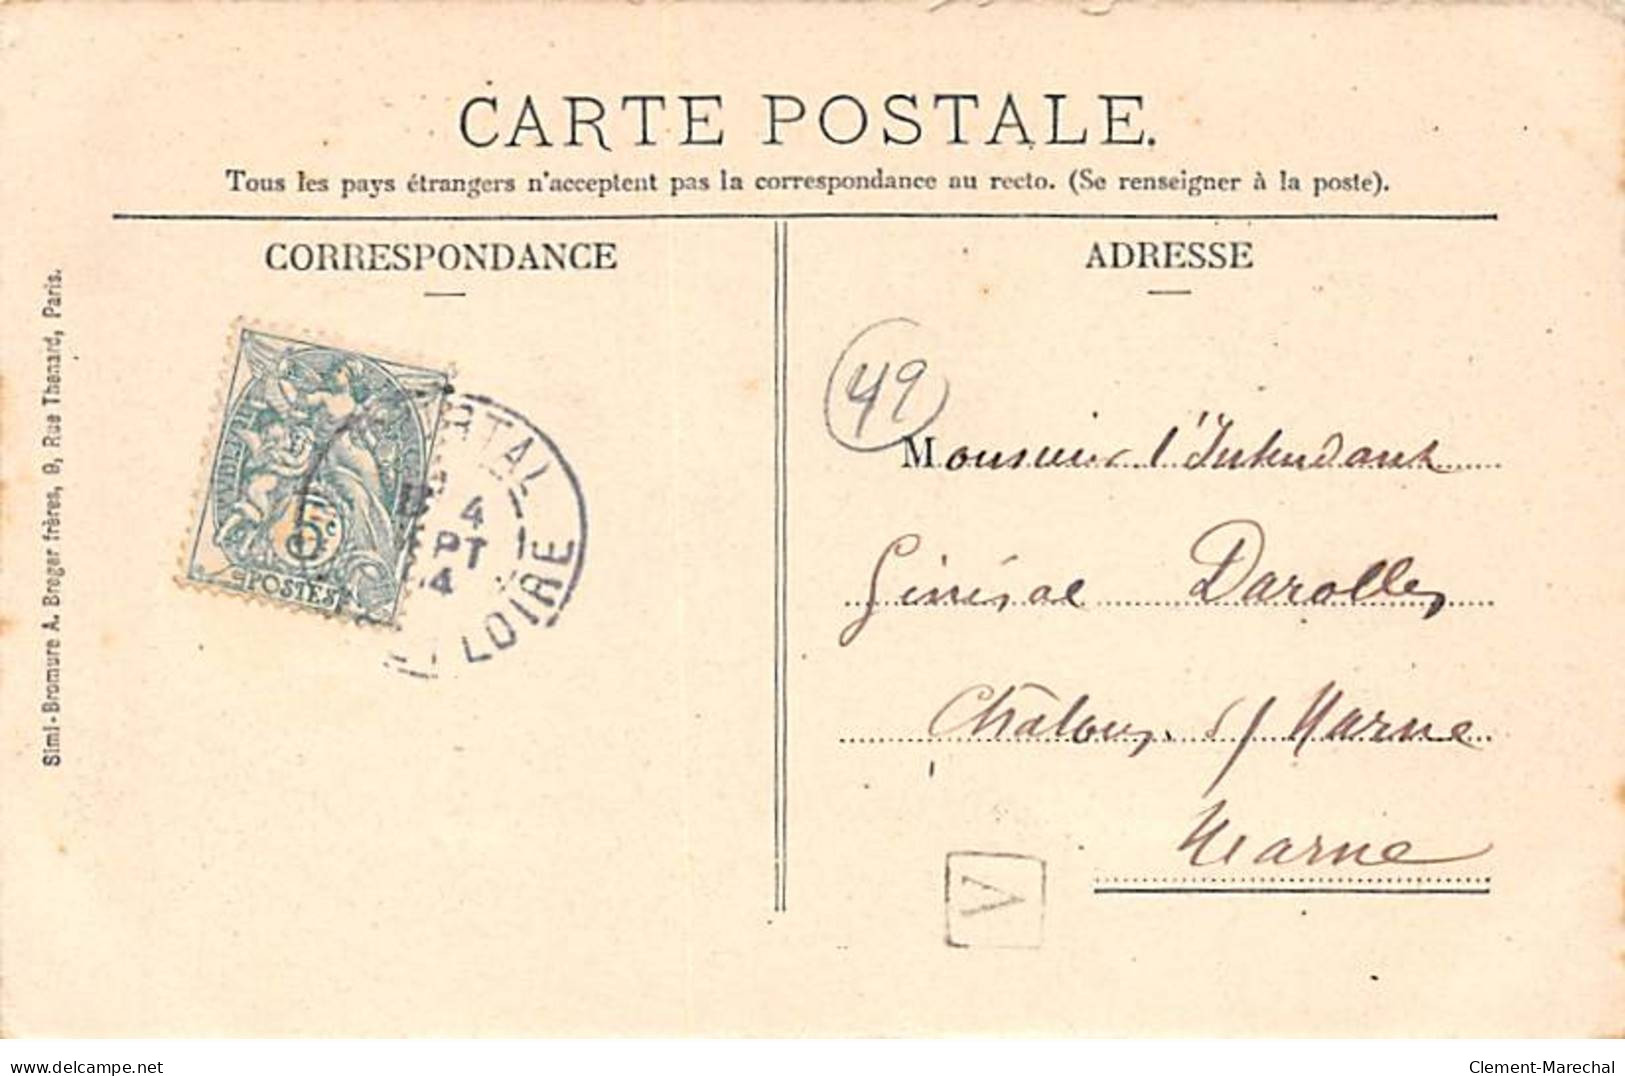 CARTE POSTALE.
Tous les pays étrangers n'acceptent pas la correspondance au recto. (Se renseigner à la poste).
CORRESPONDANCE
ADRESSE
Simi-Bromure A. Breger frères, 9, Rue Thenard, Paris.
5c
POSTES
4
PT
4
LOIRE
49
Monsieur l'Intendant
Général Darolles
Châlons s/ Marne
Marne
A
delcampe.net
Clement-Marechal